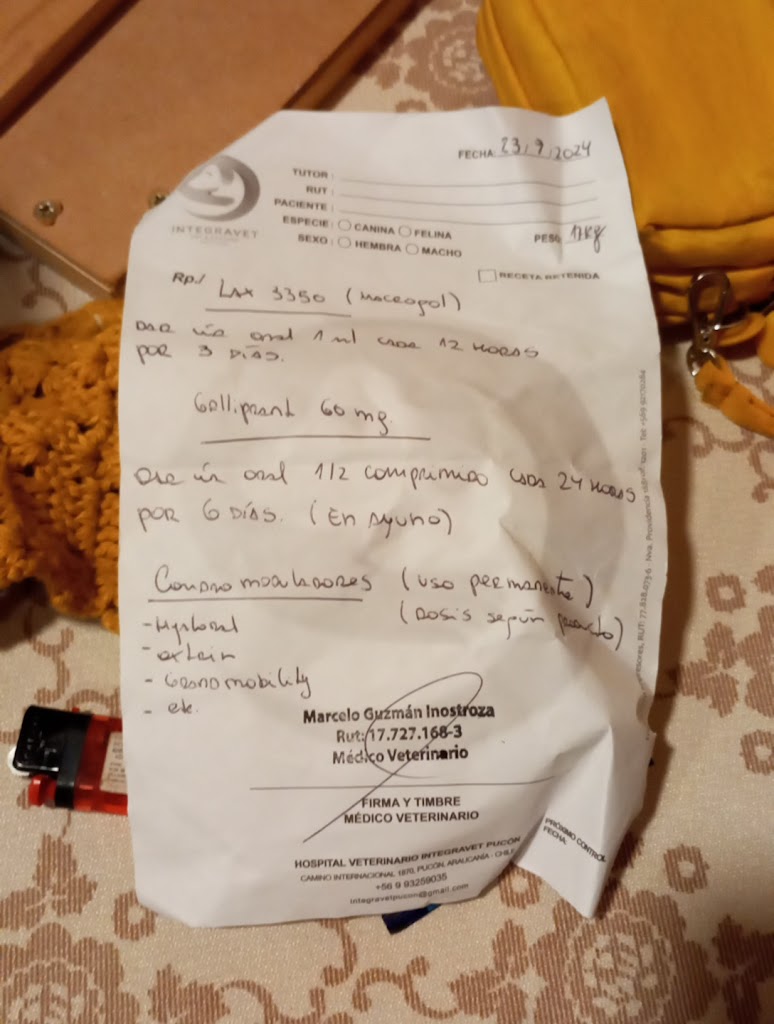 FECHA: 23/9/2024
INTEGRAVET
TUTOR:
RUT:
PACIENTE:
ESPECIE: CANINA FELINA
PESO 17Kg
SEXO: HEMBRA MACHO
RECETA RETENIDA
Rp./ LAX 3350 (Macropol)
DAR vía oral 1 ml cada 12 HORAS
por 3 DÍAS.
Galliprant 60 mg.
Dar vía oral 1/2 comprimido cada 24 HORAS
por 6 DÍAS. (En ayuno)
Condromoduladores (uso permanente)
(Dosis según)
- Hyaloral
- artrin
- Condromobility
- etc.
Marcelo Guzmán Inostroza
Rut: 17.727.168-3
Médico Veterinario
FIRMA Y TIMBRE
MÉDICO VETERINARIO
PRÓXIMO CONTROL
FECHA:
HOSPITAL VETERINARIO INTEGRAVET PUCÓN
CAMINO INTERNACIONAL 1870, PUCÓN, ARAUCANÍA - CHILE
+56 9 93259035
integravetpucon@gmail.com
RUT: 77.818.073-6 - Nva. Providencia